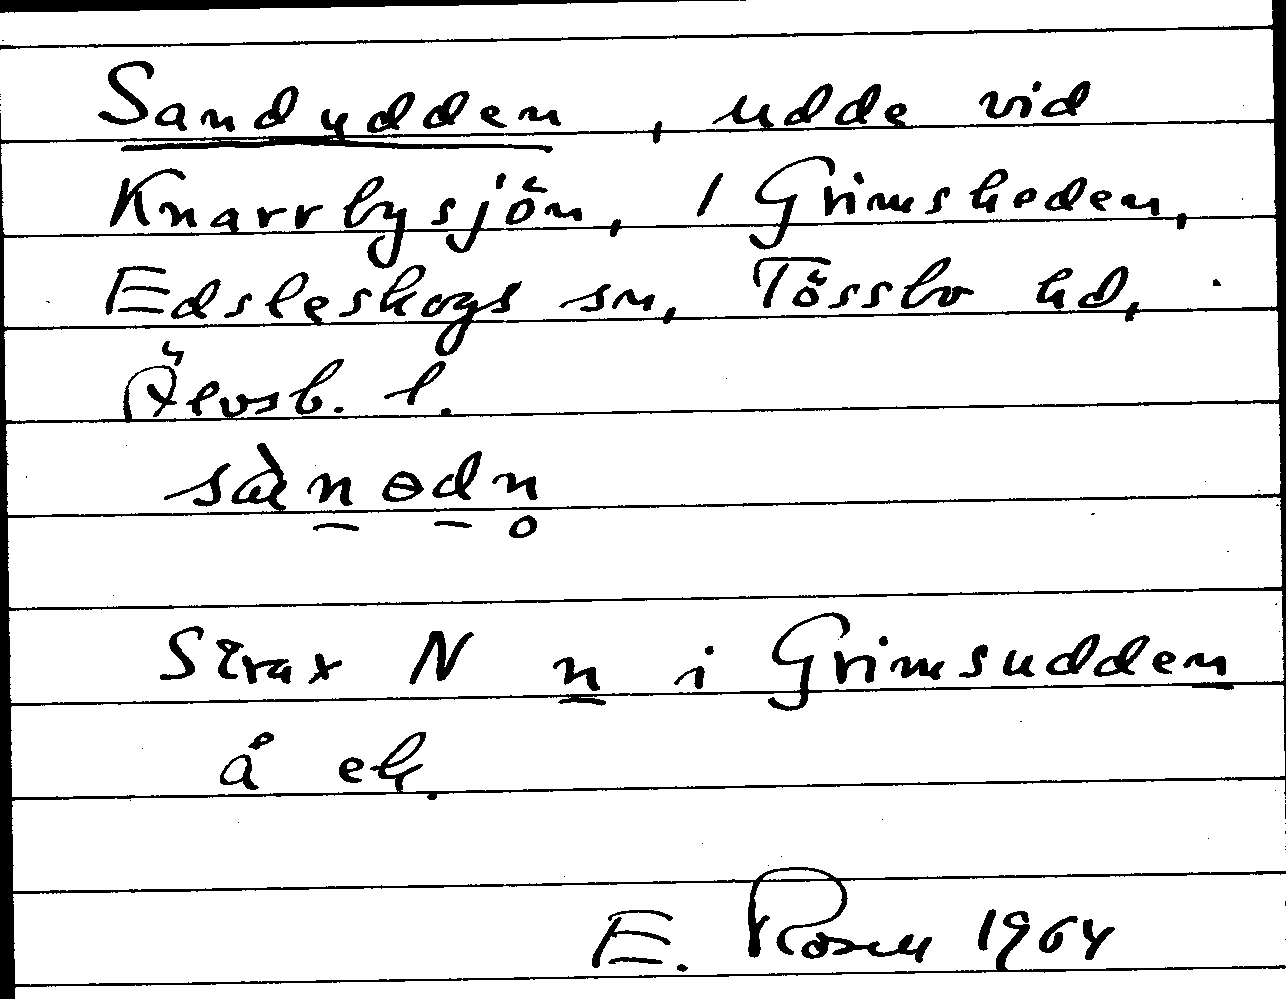 Sandudden, udde vid
Knarrbysjön, 1 Grimsheden,
Edsleskogs sn, Tössbo hd,
Älvsb. l.
sàn̲ɵd̲n̥
Strax N n̲ i Grimsudden
å ek.
E. Rosell 1964